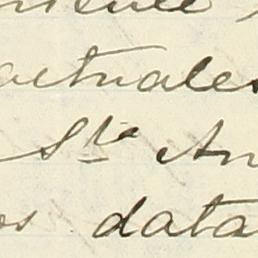 actuales
Ste An
os data